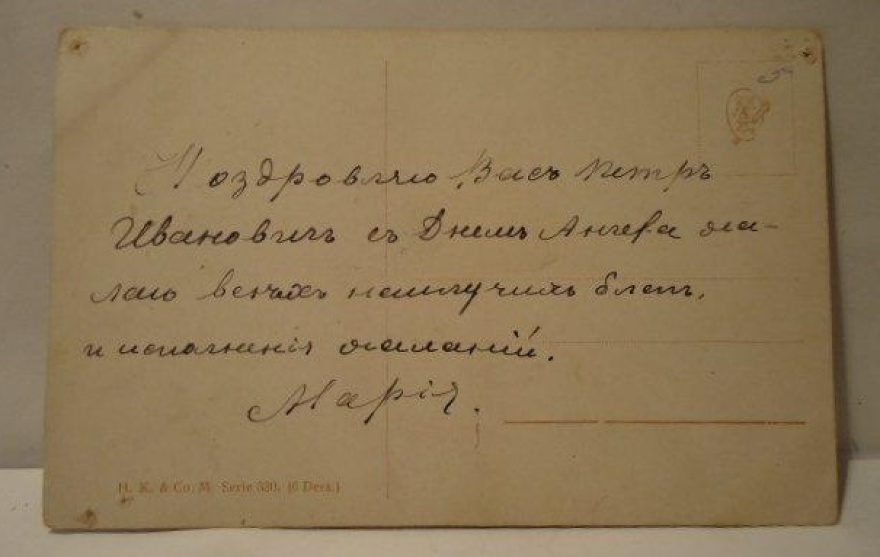 Поздровляю Васъ Петръ
Ивановичъ съ Днемъ Ангела жа-
лаю всихъ наилучихъ благъ,
и исполненія жаланій.
Марія.
H. K. & Co. M. Serie 530. (6 Dess.)